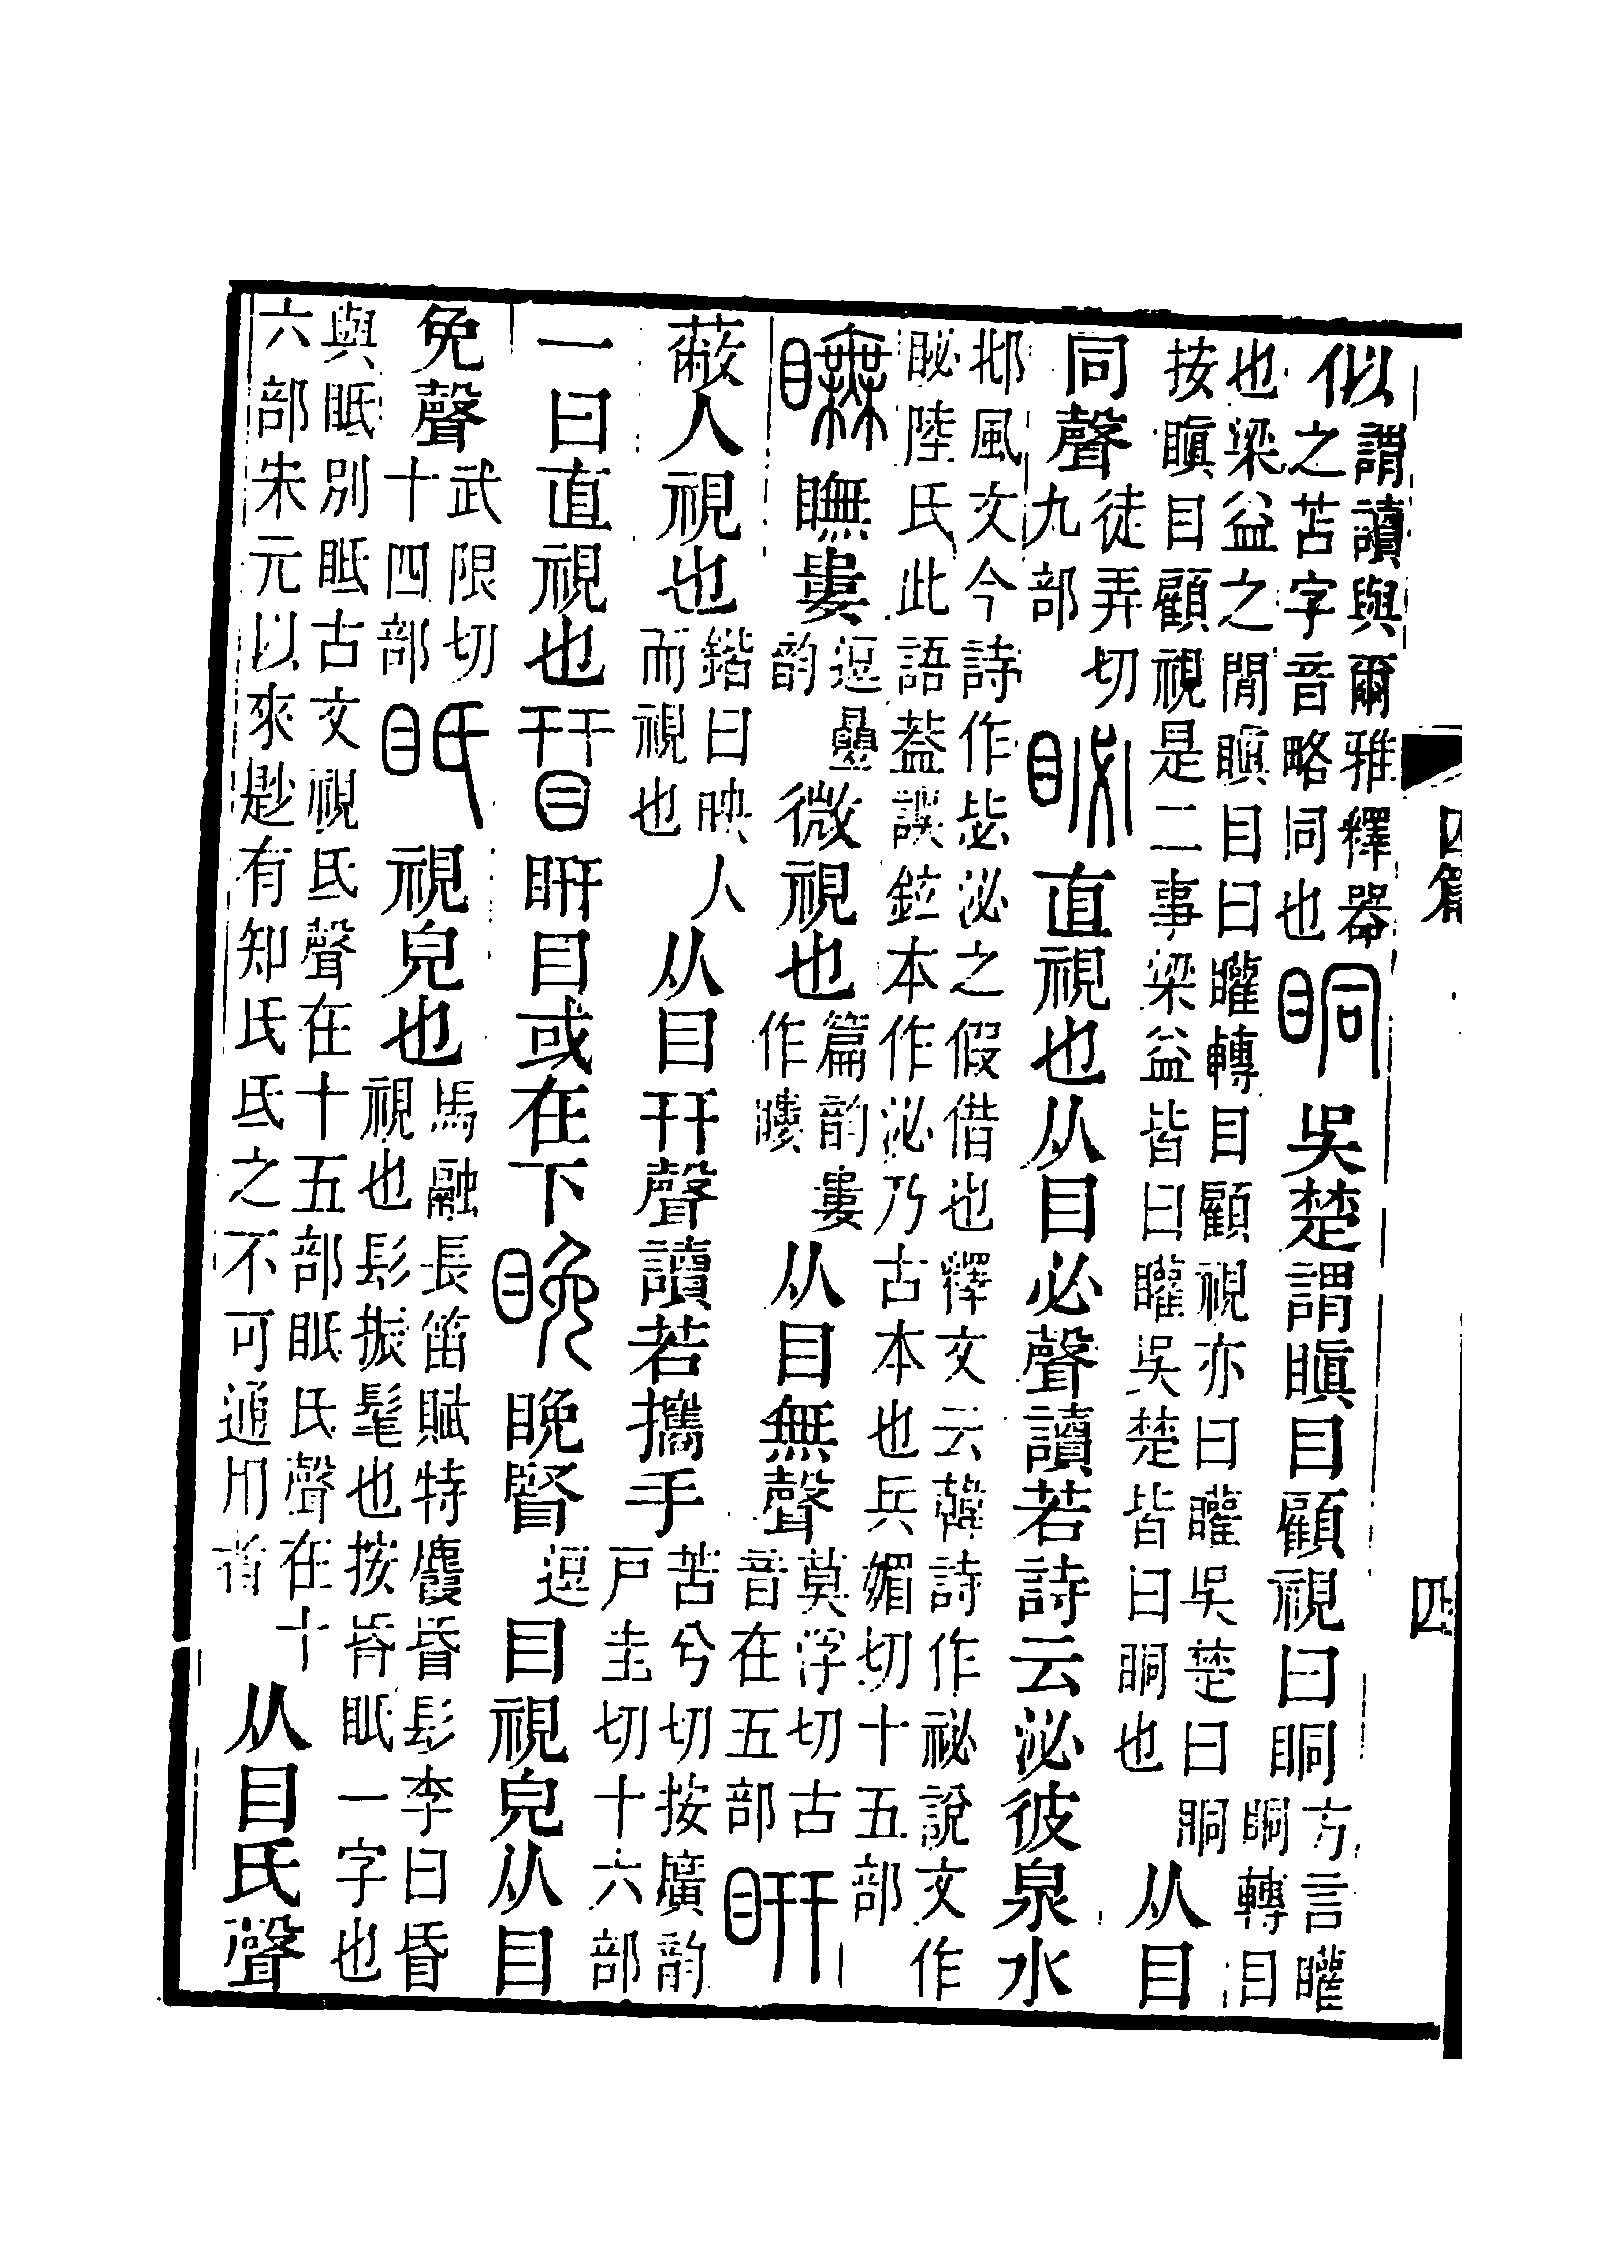 四篇
四
似謂讀與爾雅釋器之苫字音略同也眮吳楚謂瞋目顧視曰眮方言矔眮轉目
也梁益之閒瞋目曰矔轉目顧視亦曰矔吳楚曰眮按瞋目顧視是二事梁益皆曰矔吳楚皆曰眮也从目
同聲徒弄切九部䀣直視也从目必聲讀若詩云泌彼泉水
邶風文今詩作毖泌之假借也釋文云韓詩作祕說文作䀣陸氏此語葢誤鉉本作泌乃古本也兵媚切十五部
瞴瞴婁逗疊韵微視也篇韵婁作䁖从目無聲莫浮切古音在五部䀘
蔽人視也鍇曰映人而視也从目幵聲讀若攜手苦兮切按廣韵戶圭切十六部
一曰直視也䀘目或在下睌睌䁂逗目視皃从目
免聲武限切十四部眂視皃也馬融長笛賦特麚昏髟李曰昏視也髟振髦也按昏眂一字也
與眂別眡古文視氐聲在十五部眂氏聲在十六部朱元以來尟有知氏氐之不可通用者从目氏聲